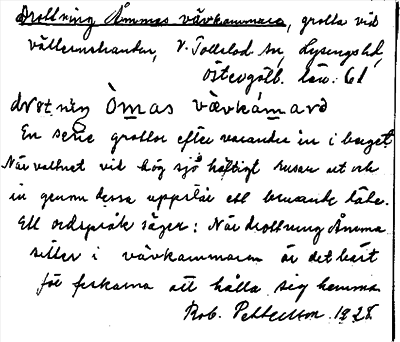 Drottning Ämmas vävkammare, grotta vid
vätternstranden, V. Tollstad sn, Lysings hd,
Östergötl. län.
drotnig Òmas vævkámarə
En serie grottor efter varandra in i berget
När vattnet vid hög sjö häftigt rusar ut och
in genom dessa uppstår ett brusande läte.
Ett ordspråk säger: När drottning Ämma
sitter i vävkammaren är det bäst
för fiskarna att hålla sig hemma
Rob. Pettersson 1928.